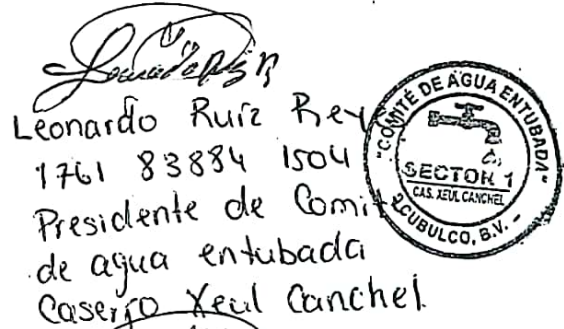 Leonardo Ruiz Rey
1761 83884 1504
Presidente de Comite
de agua entubada
Caserío Xeul Canchel.
"COMITÉ DE AGUA ENTUBADA"
SECTOR 1
CAS. XEUL CANCHEL
CUBULCO, B.V.